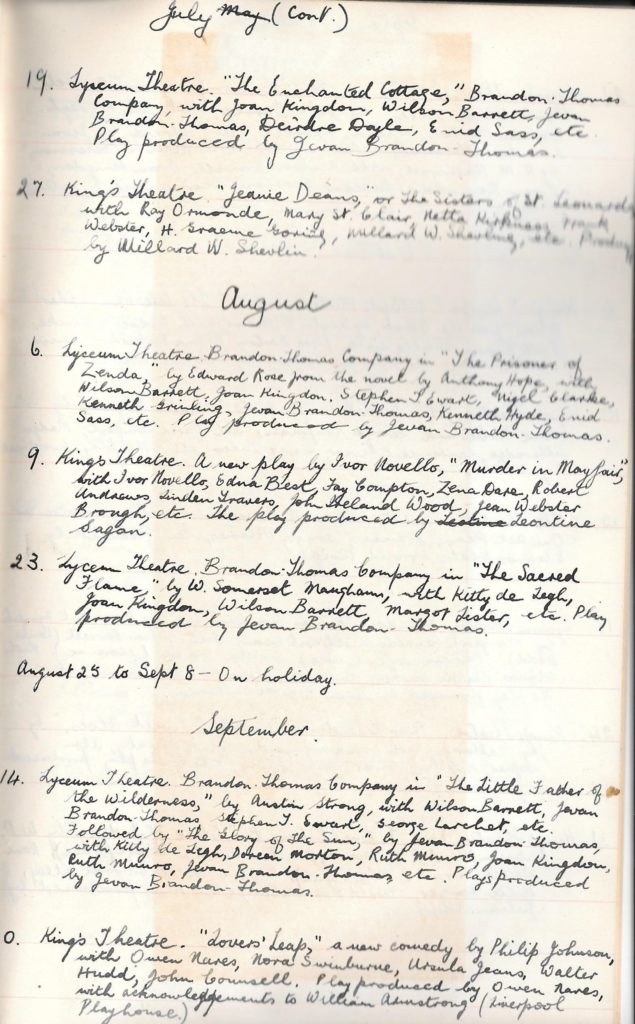 July May (Cont.)
19. Lyceum Theatre. "The Enchanted Cottage," Brandon-Thomas
Company, with Joan Kingdon, Wilson Barrett, Jevan
Brandon-Thomas, Deirdre Doyle, Enid Sass, etc.
Play produced by Jevan Brandon-Thomas.
27. King's Theatre "Jeanie Deans," or The Sisters of St. Leonards
with Ray Ormonde, Mary St. Clair, Netta Kirkness, Frank
Webster, H. Graeme Goring, Millard W. Shevlin, etc. Produced
by Millard W. Shevlin.
August
6. Lyceum Theatre. Brandon-Thomas Company in "The Prisoner of
Zenda" by Edward Rose from the novel by Anthony Hope, with
Wilson Barrett, Joan Kingdon, Stephen T Ewart, Nigel Clarke,
Kenneth Brinling, Jevan Brandon-Thomas, Kenneth Hyde, Enid
Sass, etc. Play produced by Jevan Brandon-Thomas.
9. King's Theatre. A new play by Ivor Novello, "Murder in Mayfair",
with Ivor Novello, Edna Best, Fay Compton, Zena Dare, Robert
Andrews, Linden Travers, John Ireland Wood, Jean Webster
Brough, etc. The play produced by Leontine
Sagan.
23. Lyceum Theatre. Brandon-Thomas Company in "The Sacred
Flame" by W. Somerset Maugham, with Kitty de Legh,
Joan Kingdon, Wilson Barrett, Margot Lister, etc. Play
produced by Jevan Brandon-Thomas.
August 25 to Sept 8 - On holiday.
September.
14. Lyceum Theatre. Brandon-Thomas Company in "The Little Father of
the Wilderness," by Austin Strong, with Wilson Barrett, Jevan
Brandon-Thomas, Stephen T. Ewart, George Larchet, etc.
Followed by "The Glory of The Sun," by Jevan Brandon-Thomas,
with Kitty de Legh, Doreen Morton, Ruth Munro, Joan Kingdon,
Ruth Munro, Jevan Brandon-Thomas, etc. Plays produced
by Jevan Brandon-Thomas.
0. King's Theatre. "Lovers' Leap," a new comedy by Philip Johnson,
with Owen Nares, Nora Swinburne, Ursula Jeans, Walter
Hudd, John Counsell. Play produced by Owen Nares,
with acknowledgements to William Armstrong (Liverpool
Playhouse.)